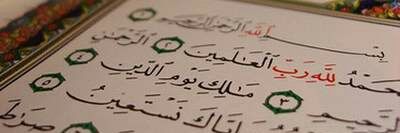 بِسْمِ اللَّهِ الرَّحْمَٰنِ الرَّحِيمِ ١
حَمْدُ لِلَّهِ رَبِّ الْعَالَمِينَ ٢ الرَّحْمَٰنِ
حِيمِ ٣ مَالِكِ يَوْمِ الدِّينِ ٤
وَإِيَّاكَ نَسْتَعِينُ ٥
صِرَاطَ